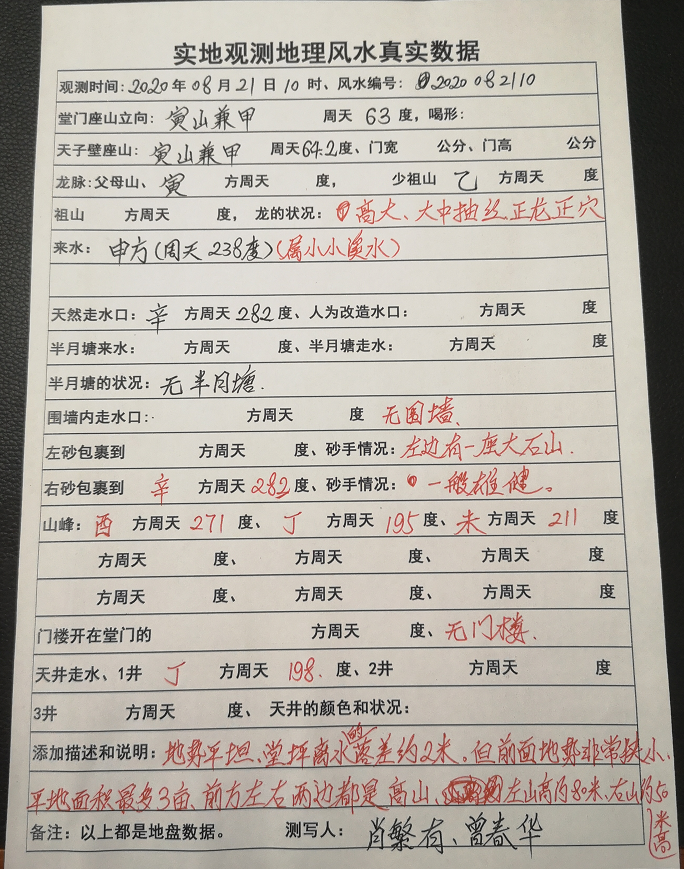 实地观测地理风水真实数据
观测时间:2020年08月21日10时、风水编号: 2020082110
堂门座山立向: 寅山兼甲 周天 63 度，喝形:
天子壁座山: 寅山兼甲 周天64.2度、门宽 公分、门高 公分
龙脉:父母山、寅 方周天 度， 少祖山 乙 方周天 度
祖山 方周天 度， 龙的状况: 高大、大中抽丝 正龙正穴
来水: 申方(周天238度)(属小小溪水)
天然走水口: 辛 方周天 282 度、人为改造水口: 方周天 度
半月塘来水: 方周天 度、半月塘走水: 方周天 度
半月塘的状况: 无半月塘.
围墙内走水口: 方周天 度 无围墙.
左砂包裹到 方周天 度、砂手情况: 左边有一座大石山.
右砂包裹到 辛 方周天 282 度、砂手情况: 一般雄健。
山峰: 酉 方周天 271 度、 丁 方周天 195 度、 未 方周天 211 度
方周天 度、 方周天 度、 方周天 度、 方周天 度
方周天 度、 方周天 度、 方周天 度、 方周天 度
门楼开在堂门的 方周天 度、无门楼.
天井走水、1井 丁 方周天 198. 度、2井 方周天 度
3井 方周天 度、 天井的颜色和状况:
添加描述和说明: 地势平坦、堂坪离水的落差约2米。但前面地势非常狭小、
平地面积最多3亩、前方左右两边都是高山、左山高约80米、右山约50
米高
备注: 以上都是地盘数据。 测写人: 肖繁有、曾春华